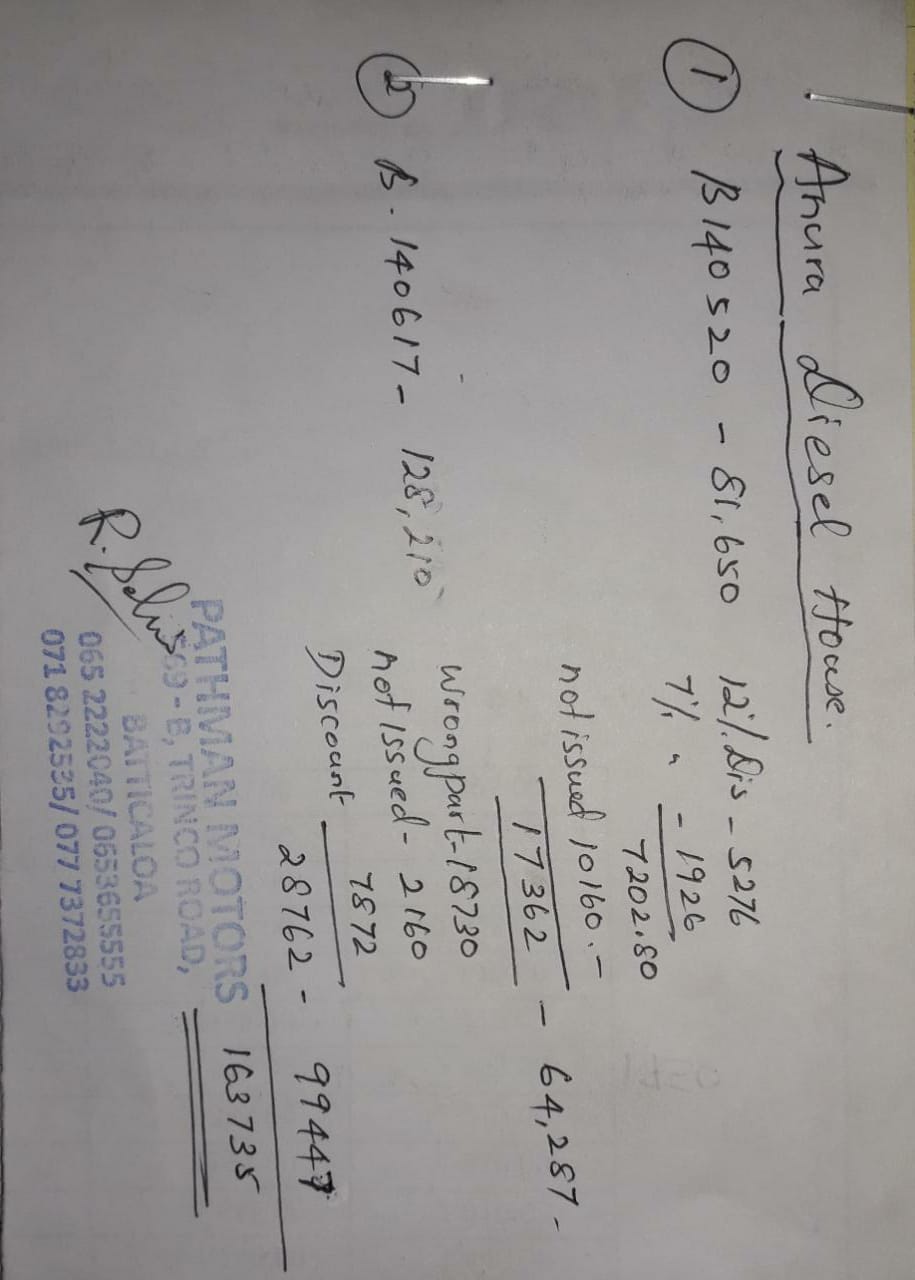 Anura Diesel House.
① B140520 - 81,650 12% Dis - 5276
7% " - 1926
7202.80
not issued 10160.-
17362 - 64,287-
② B.140617 - 128,210
wrong part-18730
not issued - 2160
Discount 7872
28762 - 99447
163735
PATHMAN MOTORS
69-B, TRINCO ROAD,
BATTICALOA
065 2222040/ 0653655555
071 8292535/ 077 7372833
R.